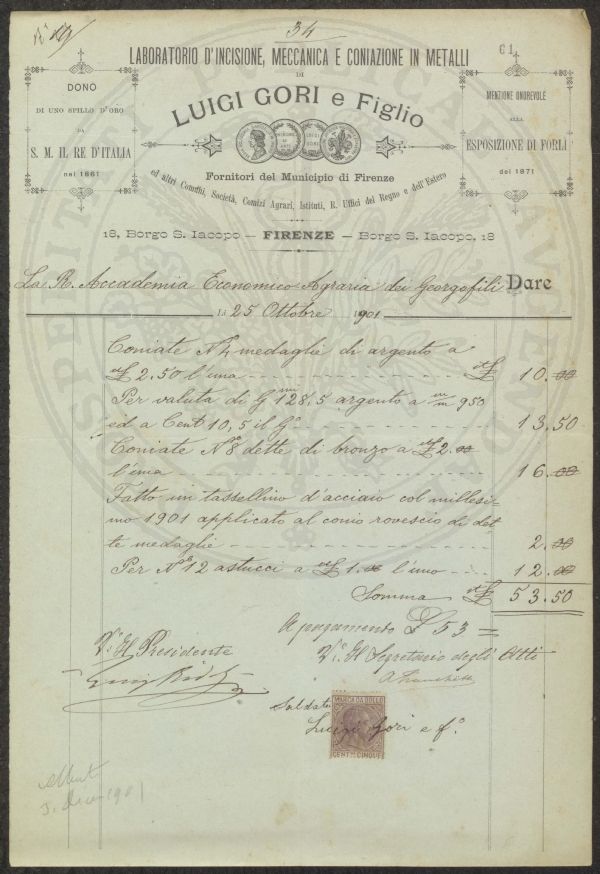 34
61
LABORATORIO D'INCISIONE, MECCANICA E CONIAZIONE IN METALLI
DI
LUIGI GORI e Figlio
DONO
DI UNO SPILLO D'ORO
DA
S. M. IL RE D'ITALIA
nel 1861
MENZIONE ONOREVOLE
ALLA
ESPOSIZIONE DI FORLÌ
del 1871
Fornitori del Municipio di Firenze
ed altri Comuni, Società, Comizi Agrari, Istituti, R. Uffici del Regno e dell'Estero
18, Borgo S. Iacopo — FIRENZE — Borgo S. Iacopo, 18
La R. Accademia Economico Agraria dei Georgofili Dare
li 25 Ottobre 1901
Coniate N 4 medaglie di argento a
£ 2.50 l'una £ 10.00
Per valuta di G 128,5 argento a m/m 950
ed a Cent 10,5 il G 13.50
Coniate N° 8 dette di bronzo a £ 2.00
l'una 16.00
Fatto un tassellino d'acciaio col millesi-
mo 1901 applicato al conio rovescio di det-
te medaglie 2.00
Per N° 12 astucci a £ 1.00 l'uno 12.00
Somma £ 53.50
A pagamento £ 53 =
V° Il Presidente
V° Il Segretario degli Atti
Saldato
Luigi Gori e f°
MARCA DA BOLLO
CENT. CINQUE
1901